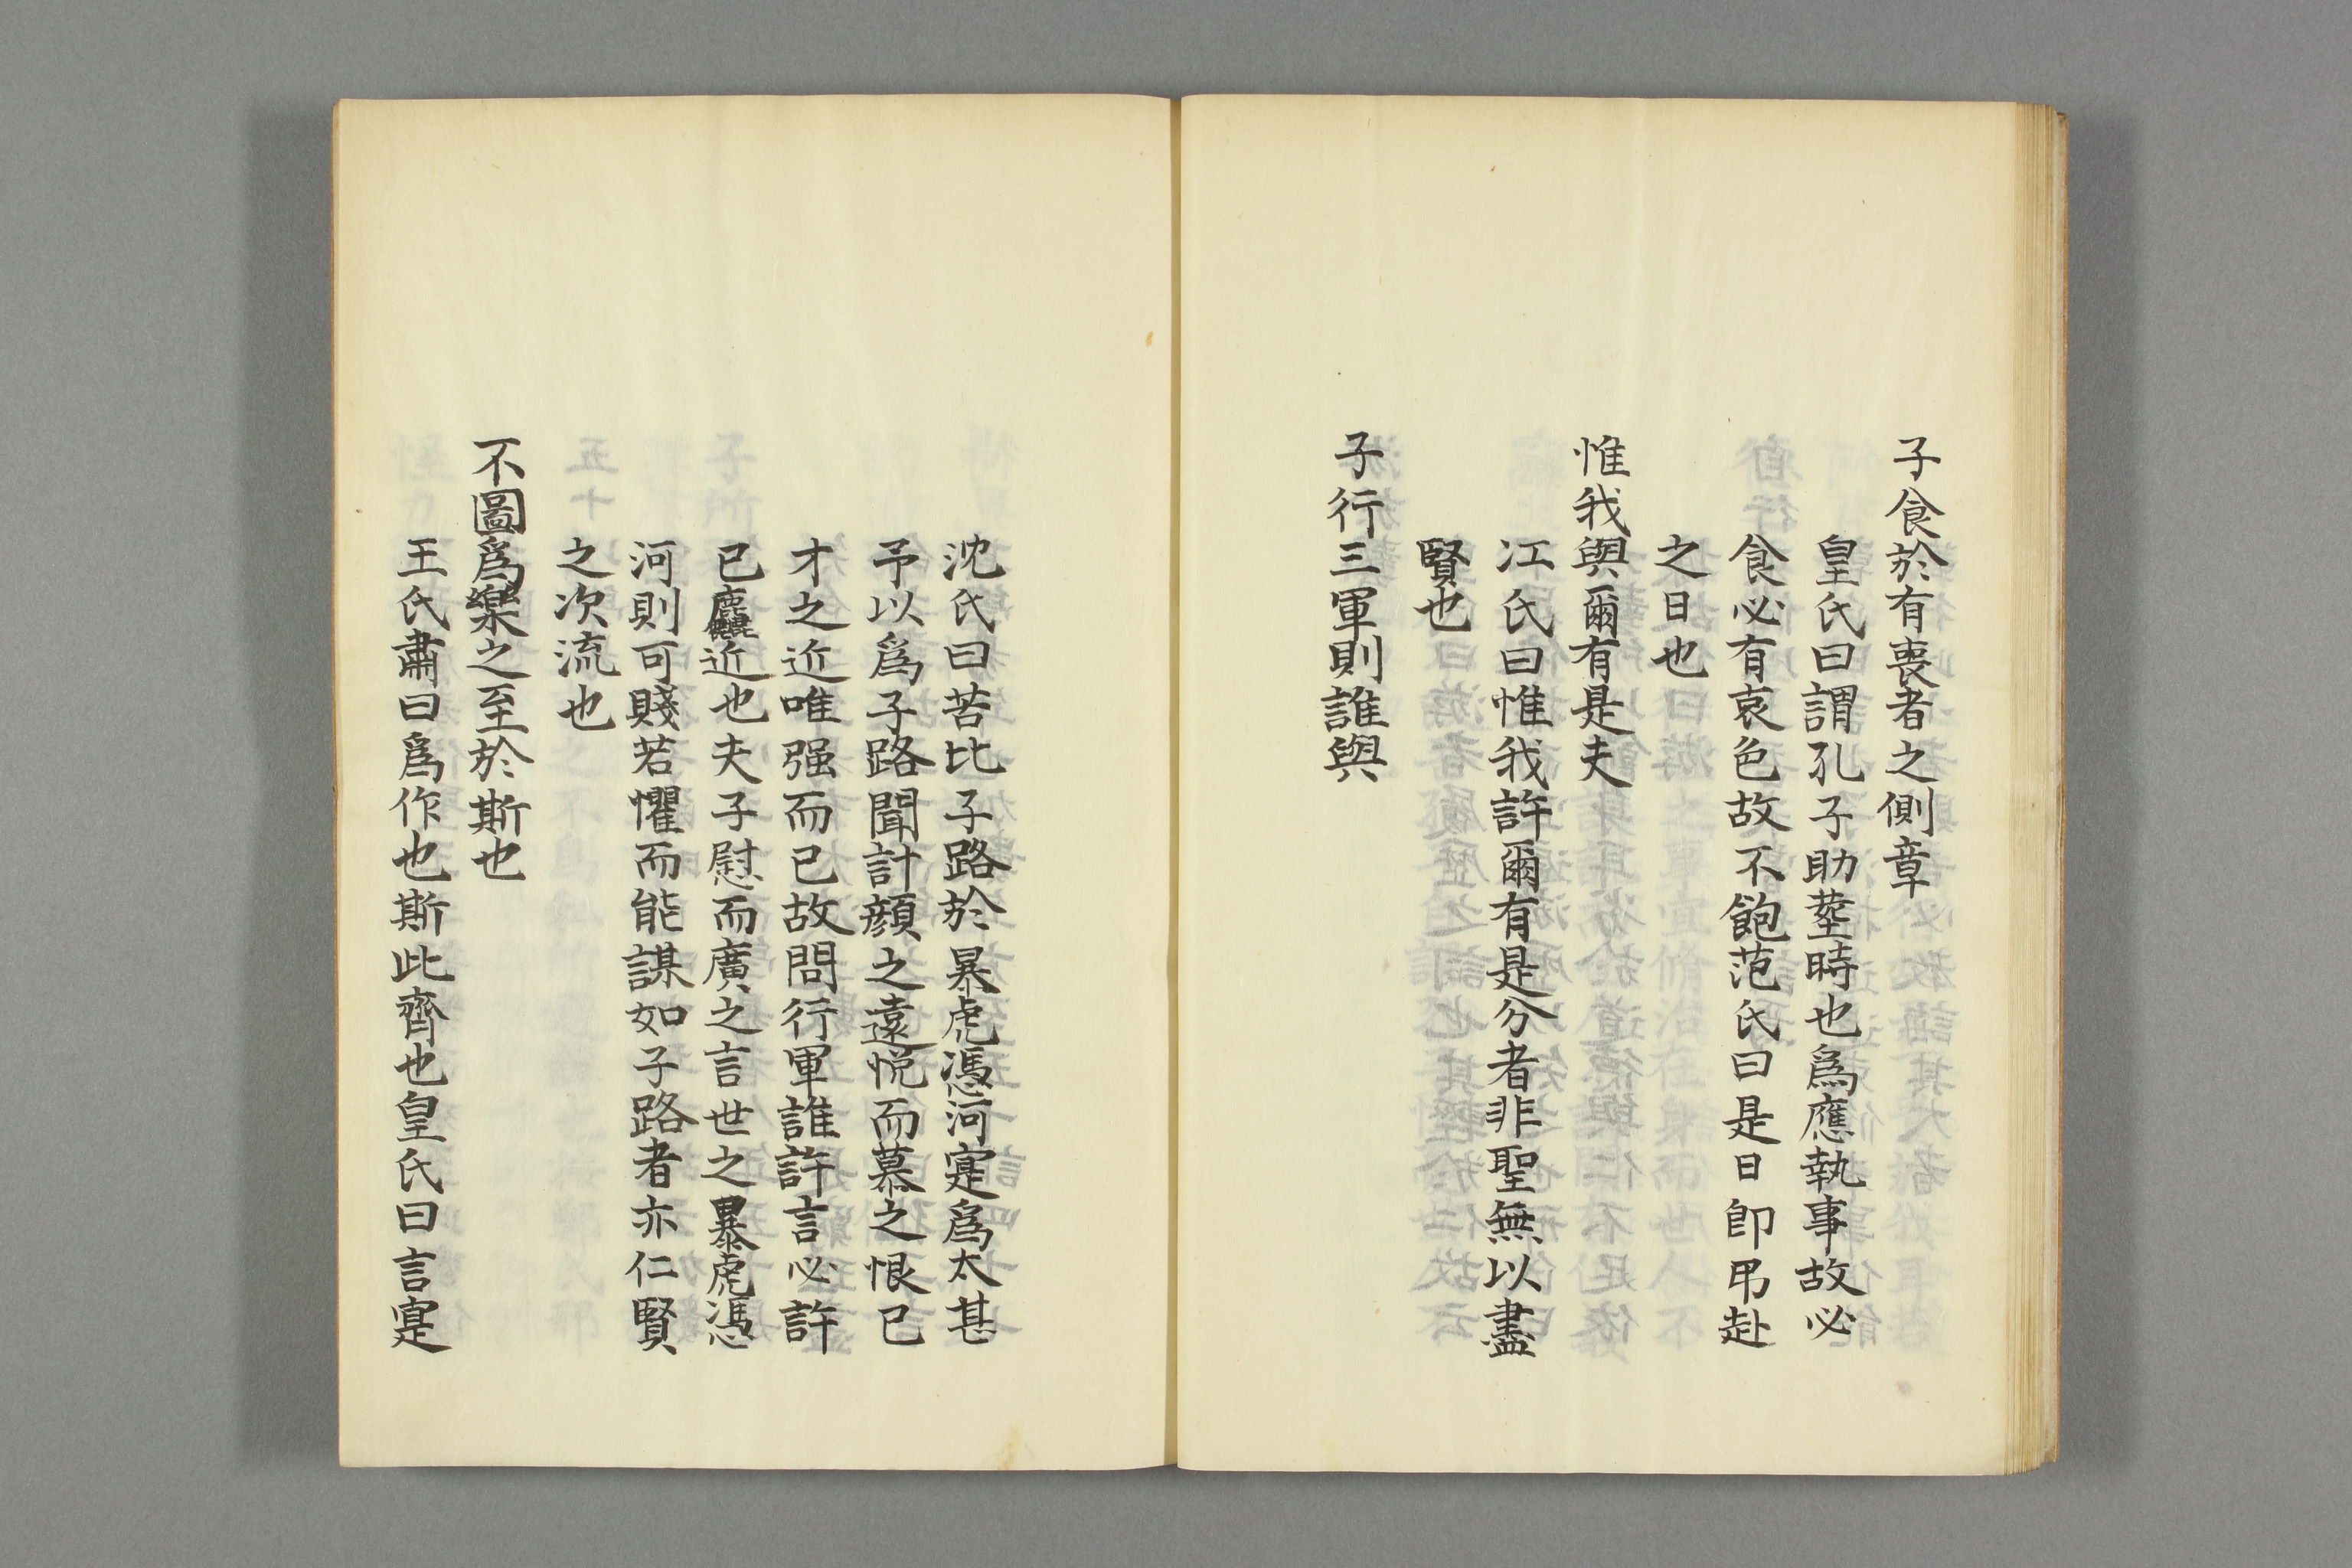 子食於有喪者之側章
皇氏曰謂孔子助塟時也爲應執事故必
食必有哀色故不飽范氏曰是日卽弔赴
之日也
惟我與爾有是夫
江氏曰惟我許爾有是分者非聖無以盡
賢也
子行三軍則誰與
沈氏曰若比子路於暴虎憑河寔爲太甚
予以爲子路聞計顔之遠悦而慕之恨已
才之近唯强而已故問行軍誰許言必許
已麤近也夫子慰而廣之言世之暴虎憑
河則可賤若懼而能謀如子路者亦仁賢
之次流也
不圖爲樂之至於斯也
王氏肅曰爲作也斯此齊也皇氏曰言寔